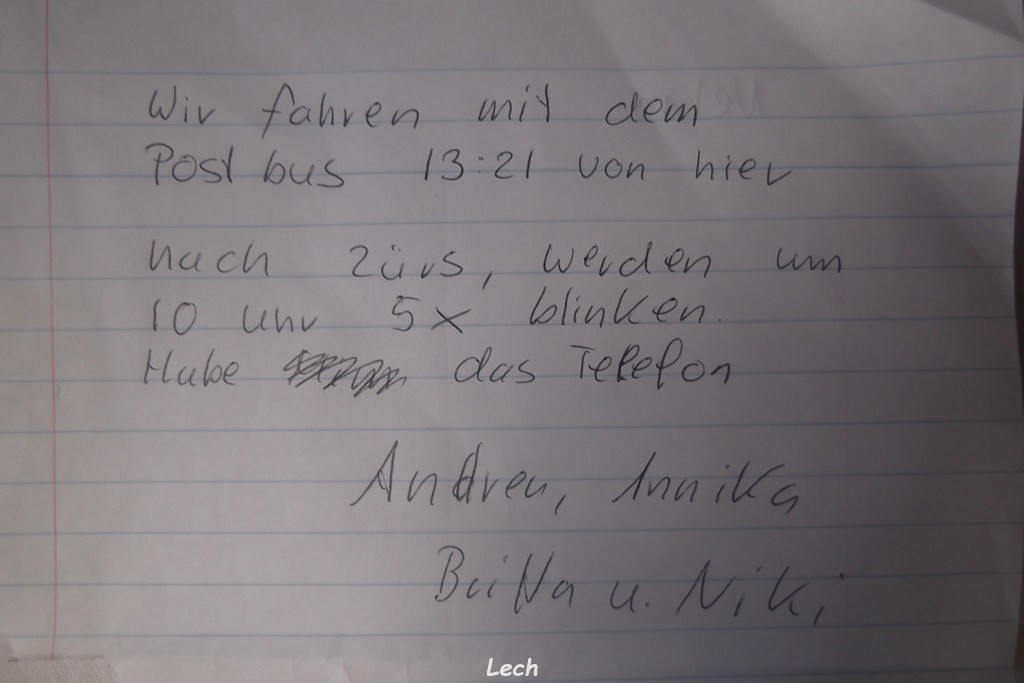 Wir fahren mit dem
Postbus 13:21 von hier
nach Zürs, werden um
10 Uhr 5x blinken.
Habe das Telefon
Andrea, Annika
Britta u. Niki
Lech